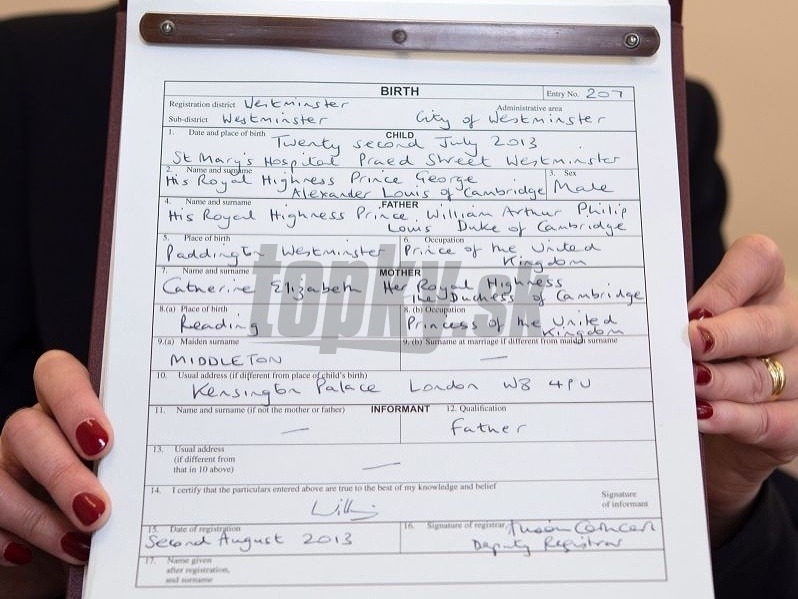 BIRTH
Entry No. 207
Registration district Westminster
Administrative area
Sub-district Westminster City of Westminster
1. Date and place of birth CHILD
Twenty second July 2013
St Mary's Hospital Praed Street Westminster
2. Name and surname
3. Sex
His Royal Highness Prince George
Alexander Louis of Cambridge
Male
4. Name and surname FATHER
His Royal Highness Prince William Arthur Philip
Louis Duke of Cambridge
5. Place of birth
6. Occupation
Paddington Westminster
Prince of the United
Kingdom
7. Name and surname MOTHER
Catherine Elizabeth Her Royal Highness
The Duchess of Cambridge
8.(a) Place of birth
8. (b) Occupation
Reading
Princess of the United
Kingdom
9.(a) Maiden surname
9. (b) Surname at marriage if different from maiden surname
MIDDLETON
—
10. Usual address (if different from place of child's birth)
Kensington Palace London W8 4PU
11. Name and surname (if not the mother or father) INFORMANT
12. Qualification
—
Father
13. Usual address
(if different from
that in 10 above)
—
14. I certify that the particulars entered above are true to the best of my knowledge and belief
Signature
of informant
15. Date of registration
16. Signature of registrar
Second August 2013
Deputy Registrar
17. Name given
after registration,
and surname
topky.sk